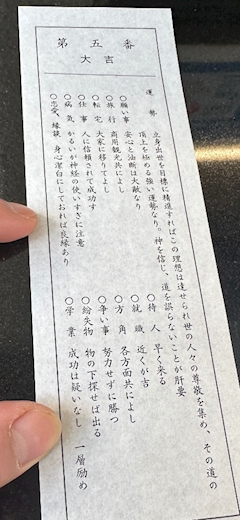 第五番
大吉
運勢
立身出世を目標に精進すればこの理想は達せられ世の人々の尊敬を集め、その道の
頂上を極める強い運勢なり。神を信じ、道を誤らないことが肝要
○願い事 安心と油断は大敵なり
○旅行 商用観光共によし
○転宅 大家に移りてよし
○仕事 人に信頼されて成功す
○病気 かるいが神経の使いすぎに注意
○恋愛、縁談 身心潔白にしておれば良縁あり
○待人 早く来る
○就職 近くが吉
○方角 各方面共によし
○争い事 努力せずに勝つ
○紛失物 物の下探せば出る
○学業 成功は疑いなし 一層励め